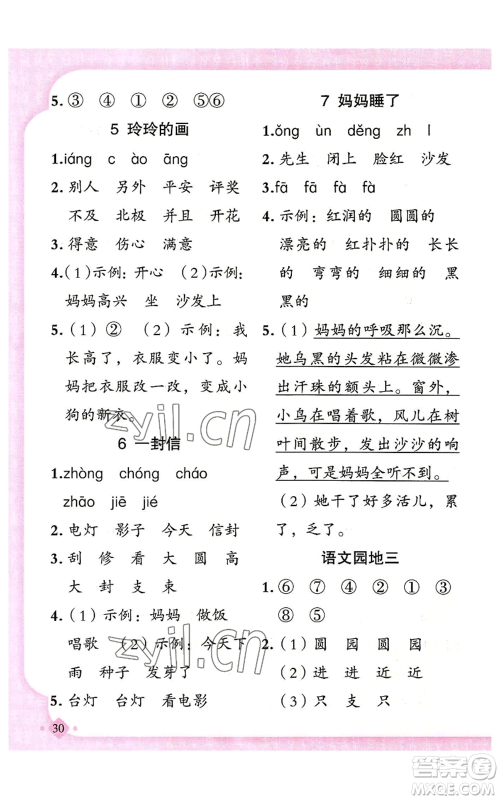 5. ③ ④ ① ② ⑤⑥
5 玲玲的画
1.iáng cǎo āng
2. 别人 另外 平安 评奖
不及 北极 并且 开花
3. 得意 伤心 满意
4.(1)示例:开心 (2)示例:
妈妈高兴 坐 沙发上
5.(1)② (2)示例:我
长高了,衣服变小了。妈
妈把衣服改一改,变成小
狗的新衣。
6 一封信
1.zhòng chóng cháo
zhāo jiē jié
2. 电灯 影子 今天 信封
3. 刮 修 看 大 圆 高
大 封 支 束
4.(1)示例:妈妈 做饭
唱歌 (2)示例:今天下
雨 种子 发芽了
5. 台灯 台灯 看电影
30
7 妈妈睡了
1.ǒng ùn děng zh l
2. 先生 闭上 脸红 沙发
3.fā fā fà fà
4. 示例:红润的 圆圆的
漂亮的 红扑扑的 长长
的 弯弯的 细细的 黑
黑的
5.(1)妈妈的呼吸那么沉。
她乌黑的头发粘在微微渗
出汗珠的额头上。窗外,
小鸟在唱着歌,风儿在树
叶间散步,发出沙沙的响
声,可是妈妈全听不到。
(2)她干了好多活,累
了,乏了。
语文园地三
1. ⑥ ⑦ ④ ② ① ③
⑧ ⑤
2.(1)圆 园 圆 园
(2)进 进 近 近
(3)只 支 只 支
zyjl.cn
zyjl.cn
答案圈
MXQE.COM